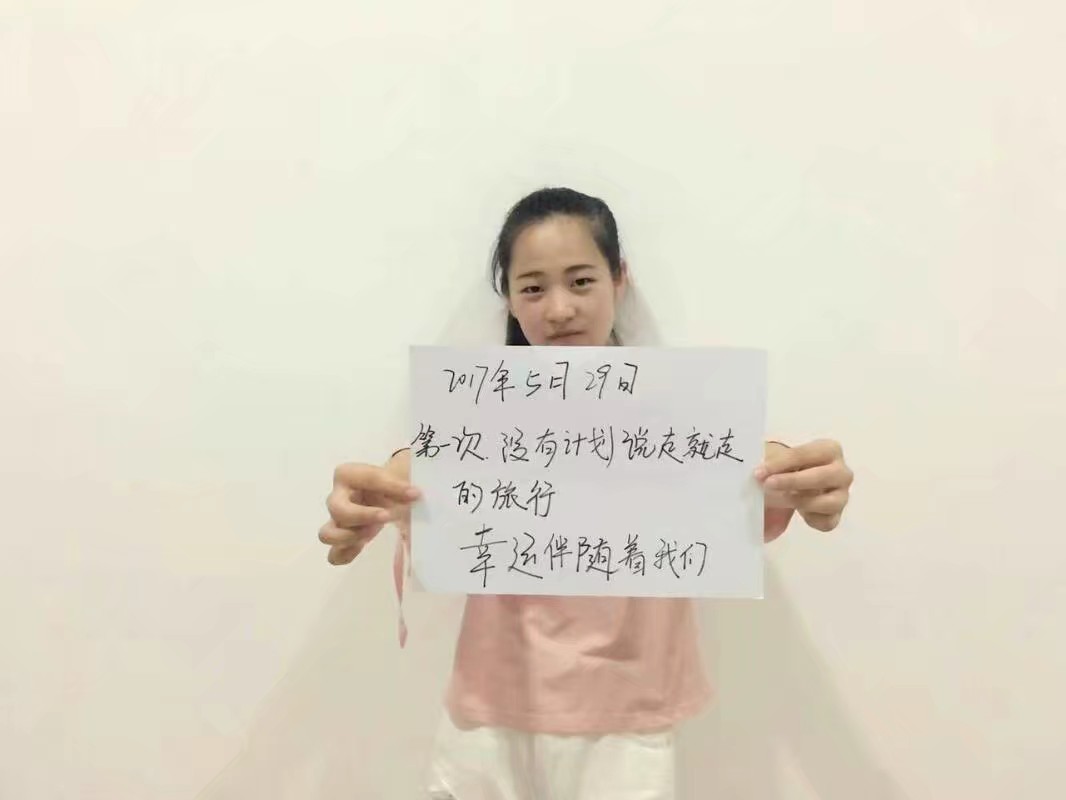 2017年5月29日
第一次.没有计划说走就走
的旅行
幸运伴随着我们